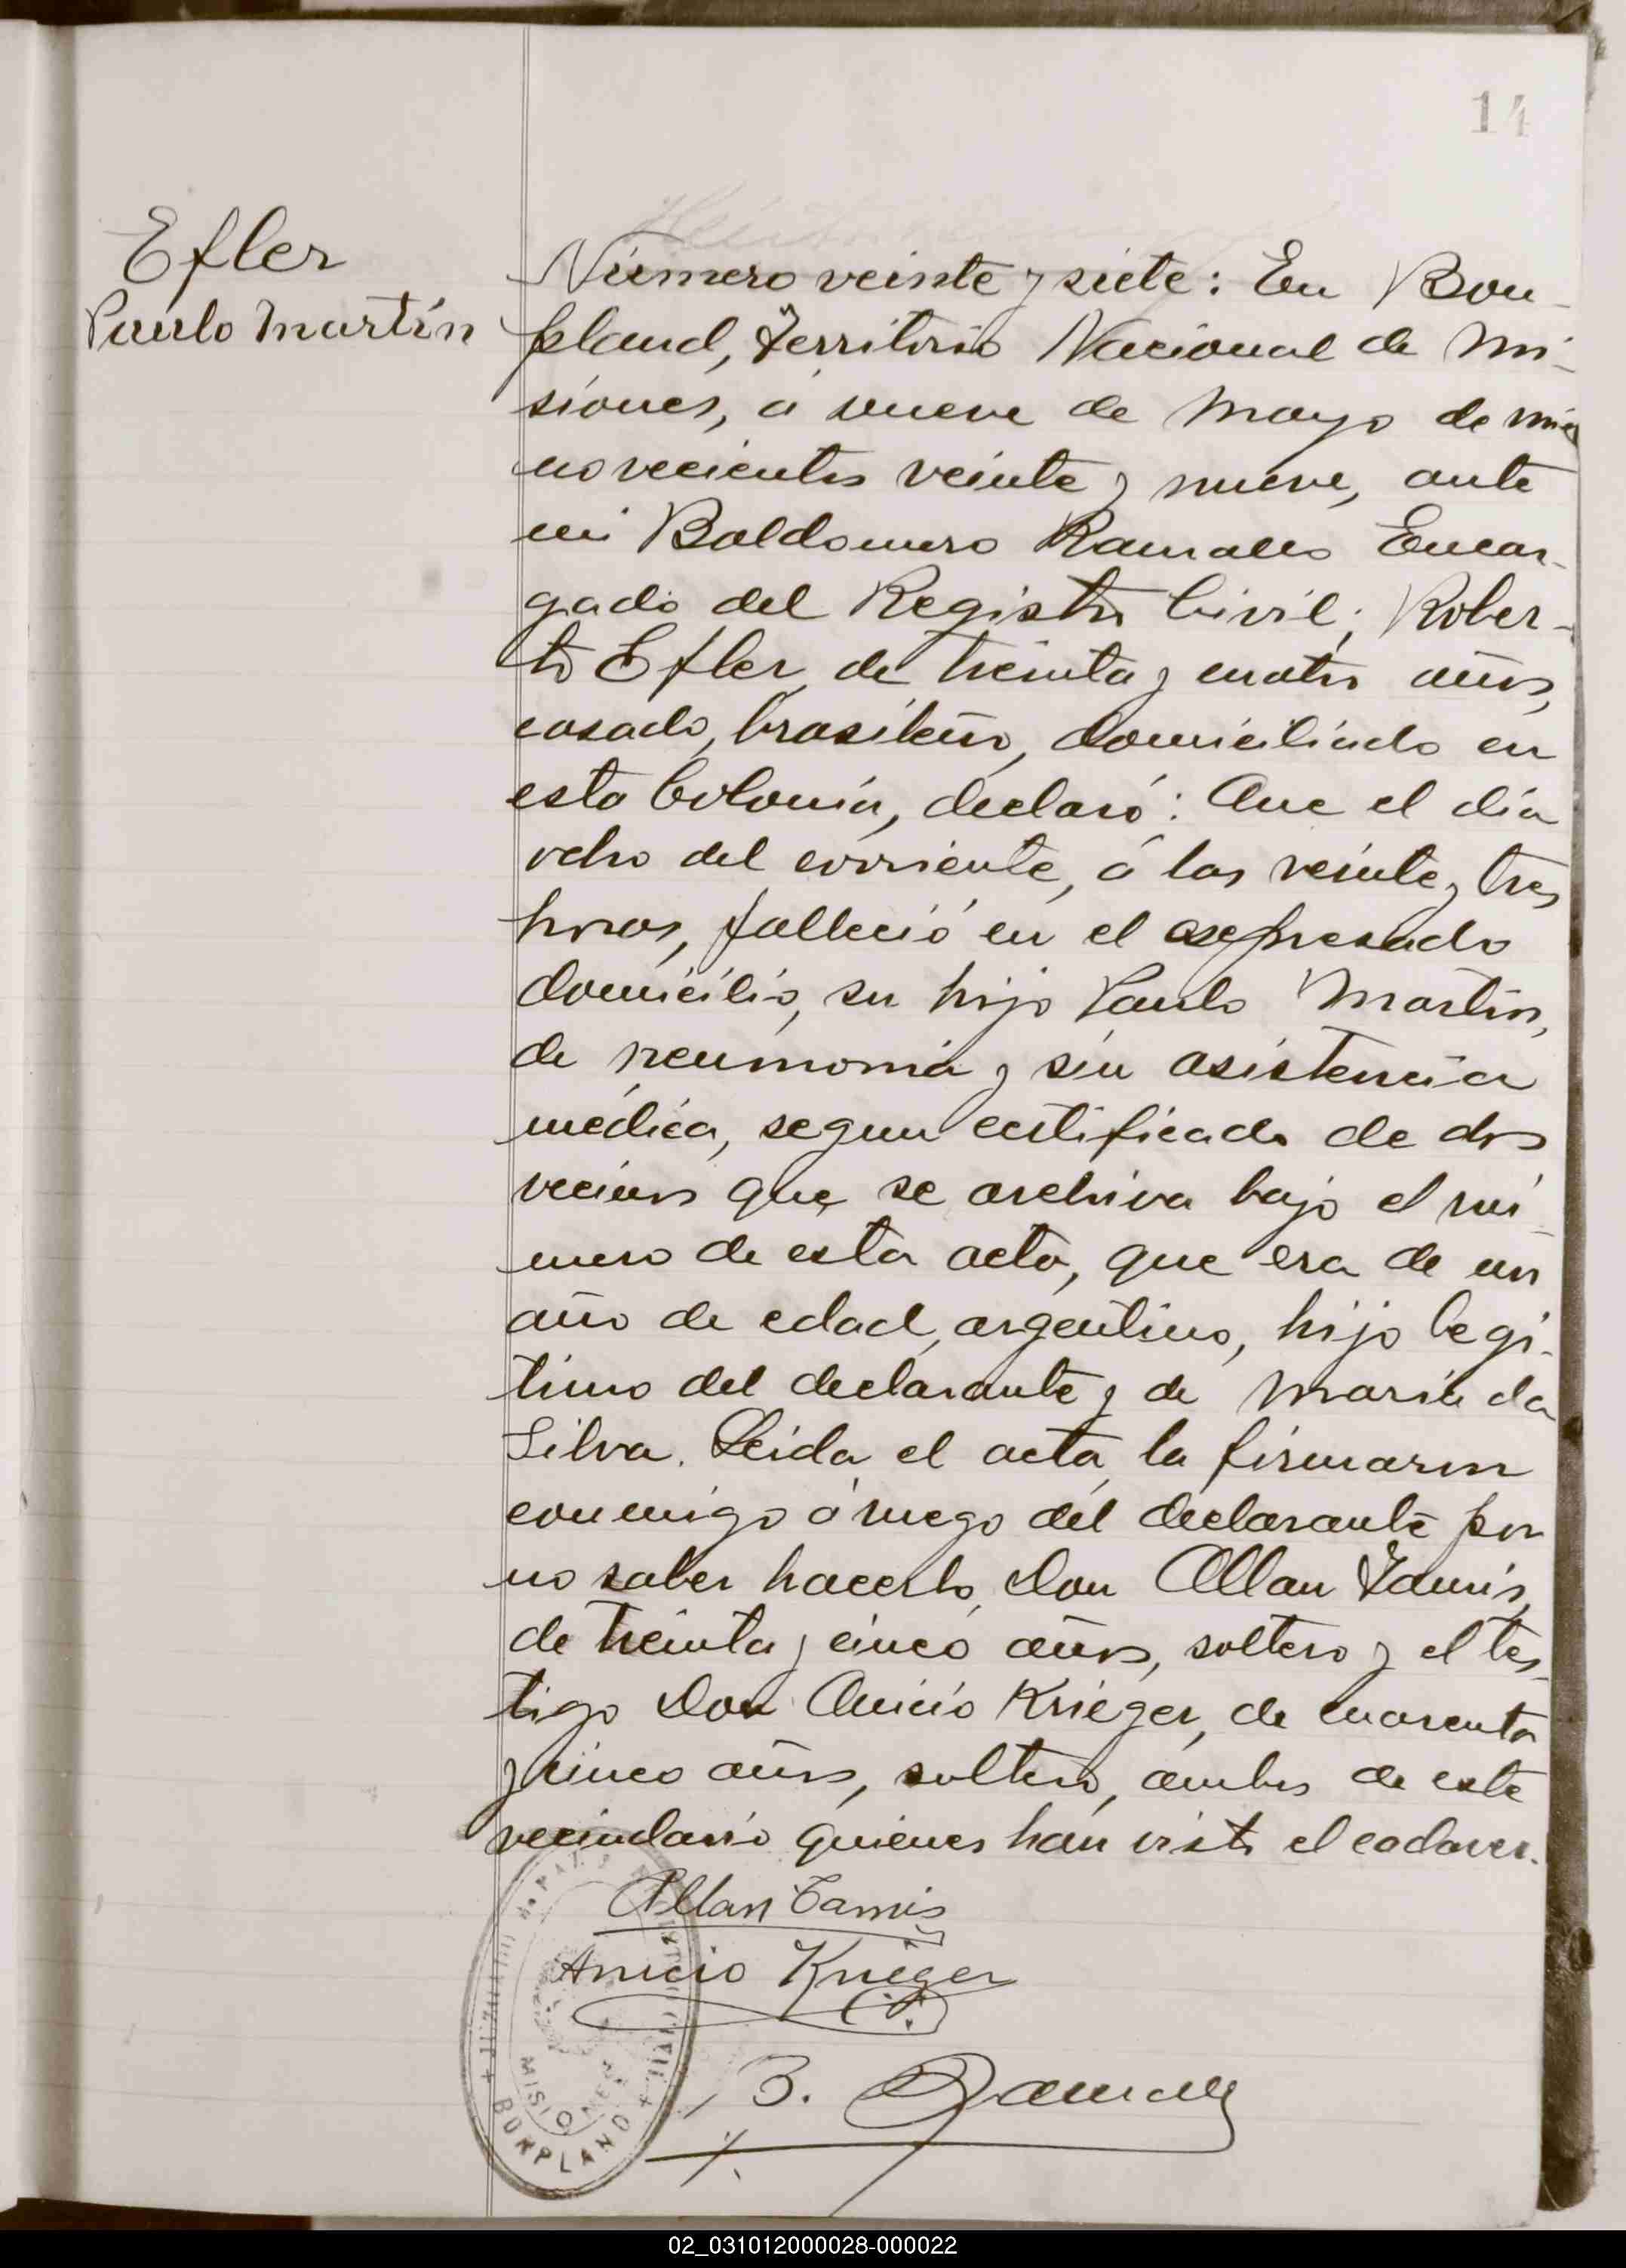 14
Efler
Paulo Martín
Número veinte y siete: En Bon-
pland, Territorio Nacional de Mi-
siones, á nueve de Mayo de mil
novecientos veinte y nueve, ante
mi Baldomero Ramallo Encar-
gado del Registro Civil; Rober-
to Efler, de treinta y cuatro años,
casado, brasileño, domiciliado en
esta Colonia, declaró: Que el día
ocho del corriente, á las veinte y tres
horas, falleció en el expresado
domicilio, su hijo Paulo Martín,
de neumonia y sin asistencia
médica, segun certificado de dos
vecinos que se archiva bajo el nú-
mero de esta acta, que era de un
año de edad, argentino, hijo legi-
timo del declarante y de María da
Silva. Leida el acta, la firmaron
conmigo á ruego del declarante por
no saber hacerlo, Don Allan Tamis,
de treinta y cinco años, soltero y el tes-
tigo Don Anicio Krieger, de cuarenta
y cinco años, soltero, ambos de este
vecindario quienes han visto el cadaver.
Allan Tamis
Anicio Krieger
B. Ramallo
JUZGADO de PAZ Y REGISTRO CIVIL
MISIONES
BONPLAND
02_031012000028-000022